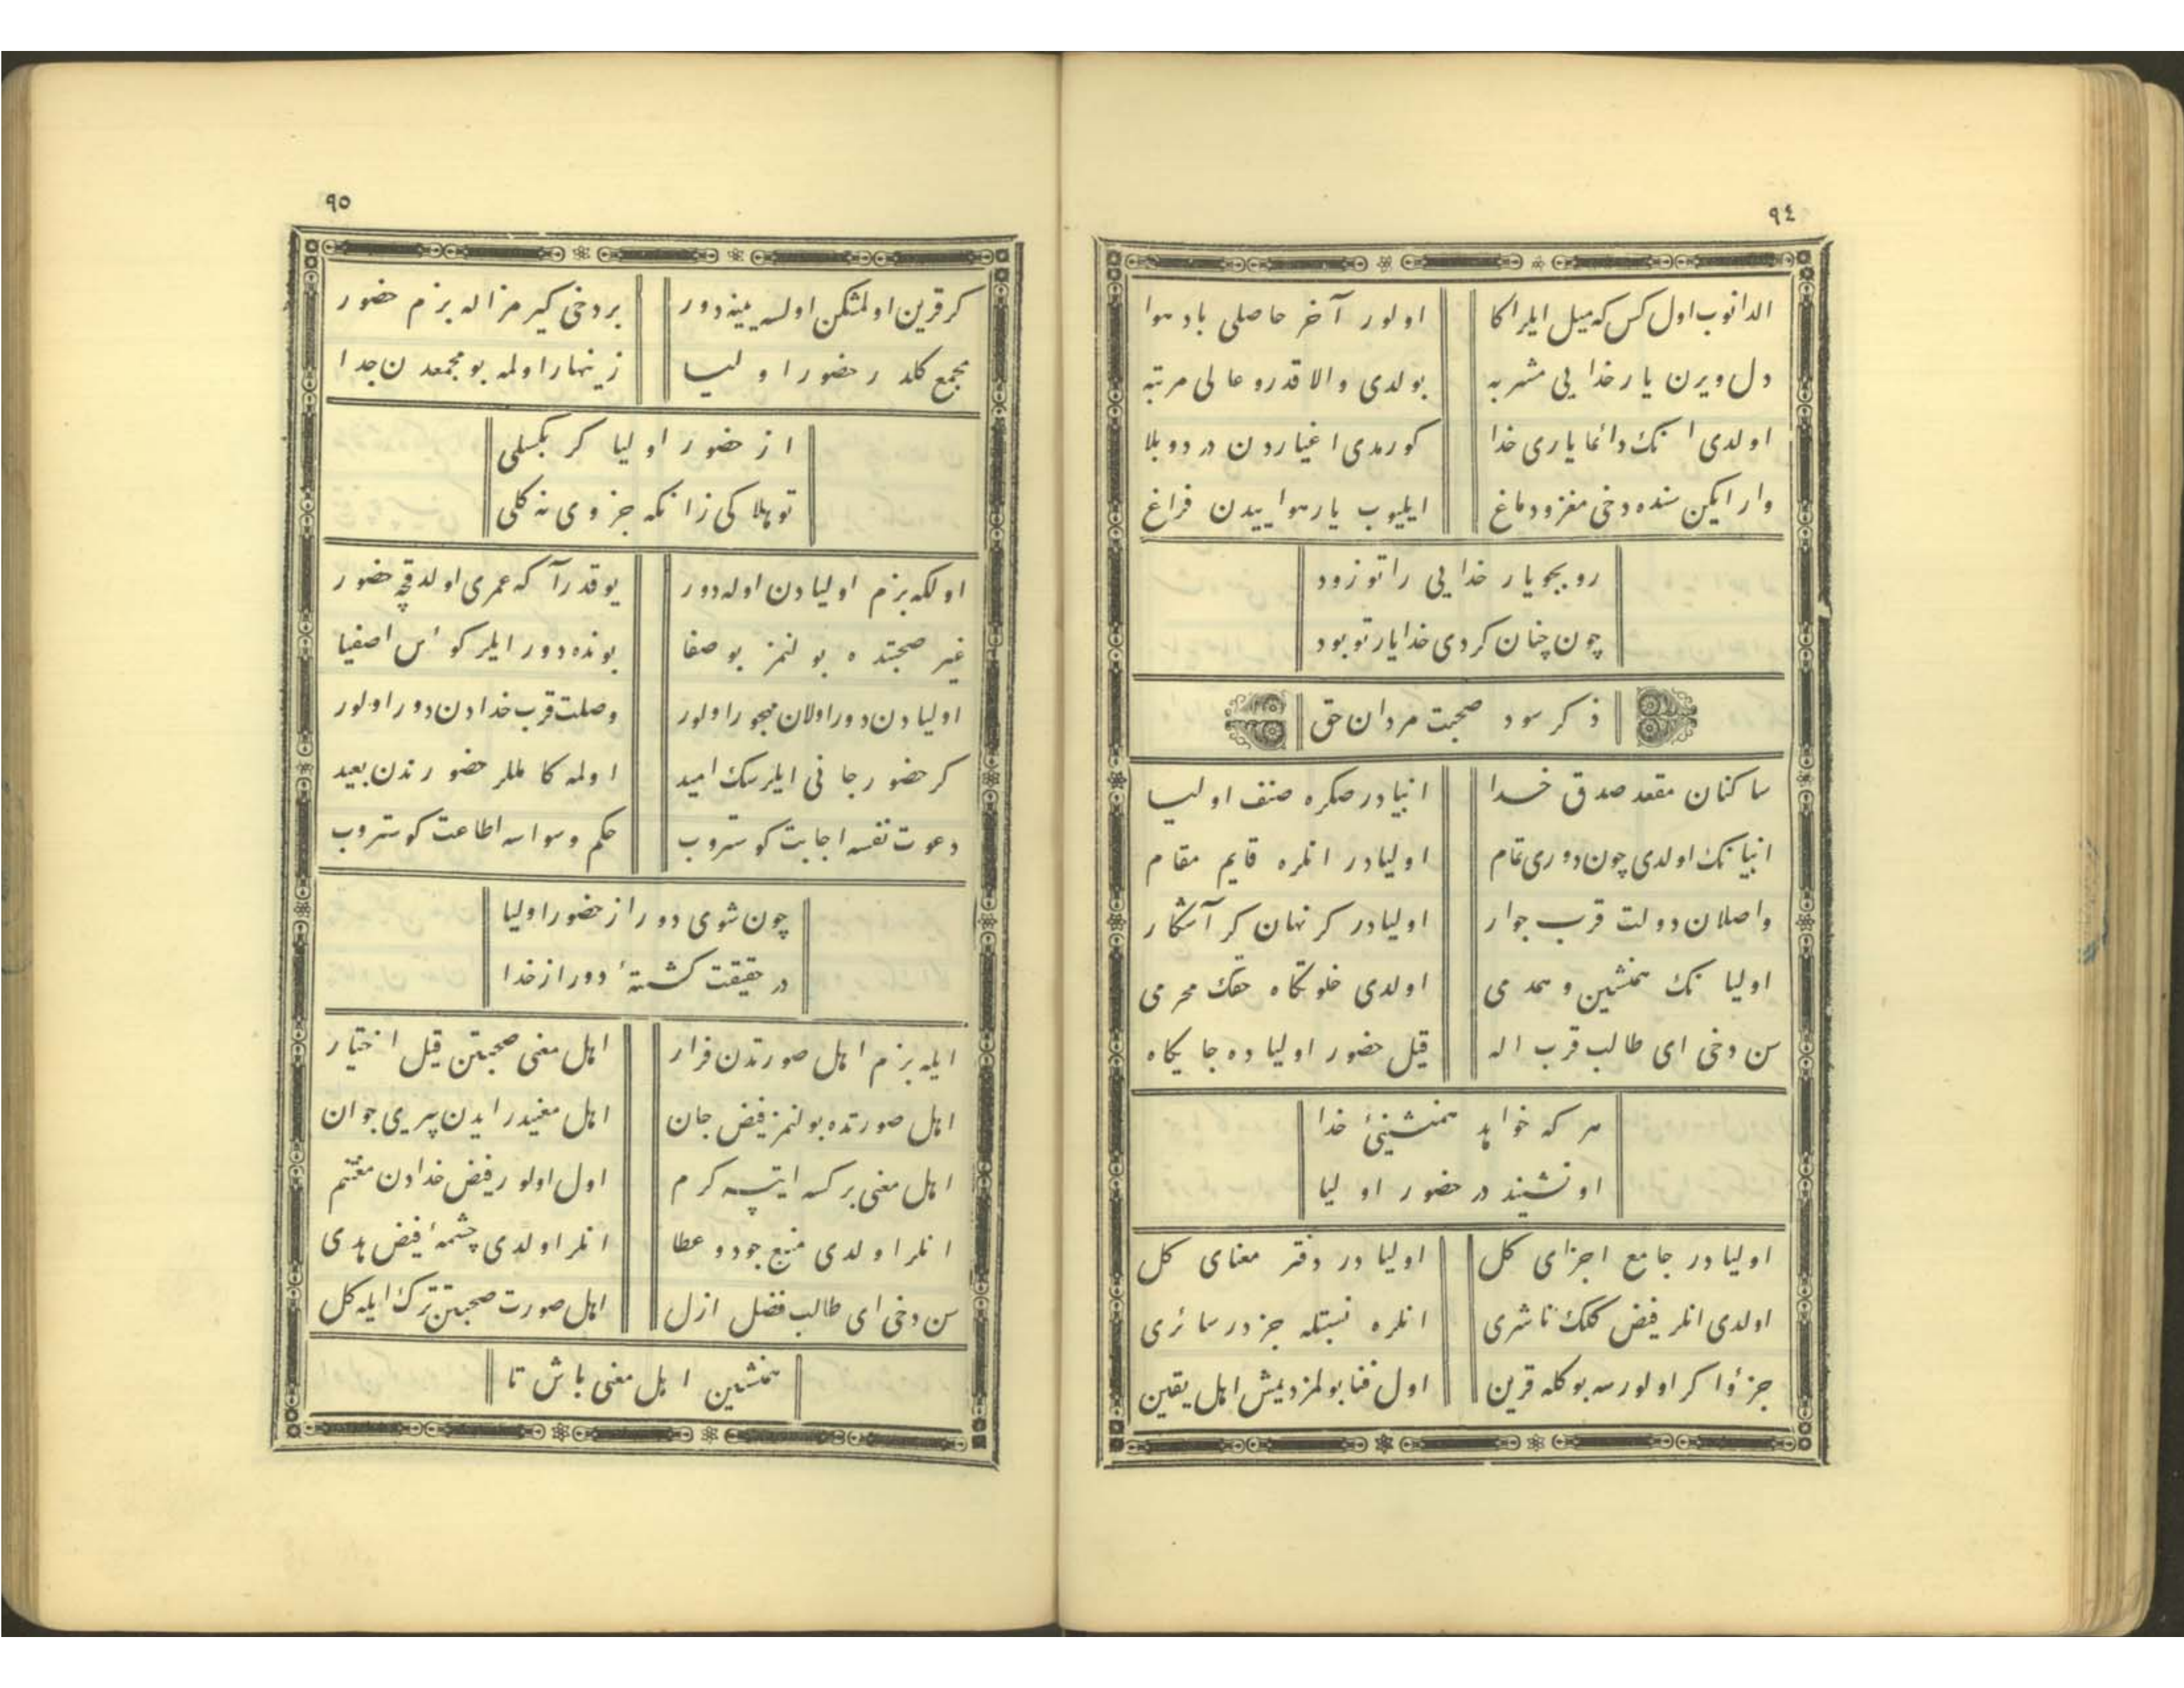 ٩٤
الدانوب اول كس كه ميل ايلر اكا اولور آخر حاصلى باد هوا
دل ويرن يار خدايى مشربه بولدى والا قدر و عالى مرتبه
اولدى انك دائما يارى خدا كورمدى اغياردن درد و بلا
وار ايكن سنده دخى مغز و دماغ ايليوب يار هواييدن فراغ
رو بجو يار خدايى را تو زود
چون چنان كردى خدا يار تو بود
ذكر سود صحبت مردان حق
ساكنان مقعد صدق خدا انبيادر صكره صنف اوليا
انبيانك اولدى چون دورى تمام اوليادر انلره قايم مقام
واصلان دولت قرب جوار اوليادر كر نهان كر آشكار
اوليانك همنشين و همدمى اولدى خلوتكاه حقك محرمى
سن دخى اى طالب قرب اله قيل حضور اولياده جايكاه
هر كه خواهد همنشينئ خدا
او نشيند در حضور اوليا
اوليادر جامع اجزاى كل اوليادر دفتر معناى كل
اولدى انلر فيض كلك ناشرى انلره نسبتله جزدر سائرى
جزؤا كر اولورسه بو كله قرين اول فنا بولمز ديمش اهل يقين
٩٥
كر قرين اولمشكن اولسه ينه دور بر دخى كيرمز اله بزم حضور
مجمع كلدر حضور اوليا زينهار اولمه بو مجمعدن جدا
از حضور اوليا كر بكسلى
تو هلاكى زانكه جزوى نه كلى
اولكه بزم اوليادن اوله دور يوقدر آكه عمرى اولدقچه حضور
غير صحبتده بولنمز بو صفا بونده دور ايلر كؤس اصفيا
اوليادن دور اولان مهجور اولور وصلت قرب خدادن دور اولور
كر حضور جانى ايلرسك اميد اولمه كاملر حضورندن بعيد
دعوت نفسه اجابت كوستروب حكم وسواسه اطاعت كوستروب
چون شوى دور از حضور اوليا
در حقيقت كشتهٔ دور از خدا
ايله بزم اهل صورتدن فرار اهل معنى صحبتن قيل اختيار
اهل صورتده بولنمز فيض جان اهل معنيدر ايدن پيرى جوان
اهل معنى بر كسه ايتسه كرم اول اولور فيض خدادن مغتنم
انلر اولدى منبع جود و عطا انلر اولدى چشمهٔ فيض هدى
سن دخى اى طالب فضل ازل اهل صورت صحبتن ترك ايله كل
همنشين اهل معنى باش تا